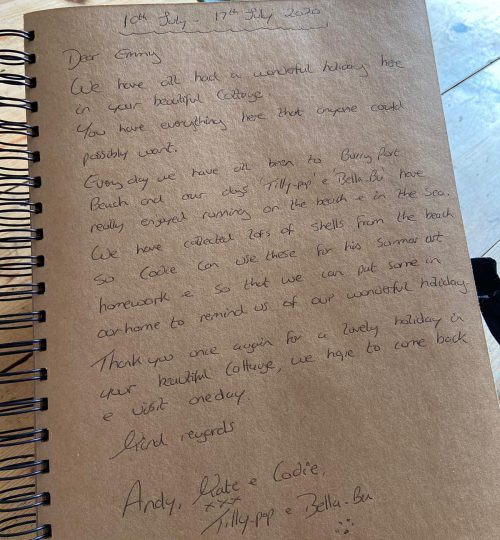 10th July - 17th July 2020
Dear Emmy
We have all had a wonderful holiday here
in your beautiful Cottage
You have everything here that anyone could
possibly want.
Every day we have all been to Burry Port
Beach and our dogs 'Tilly-pop' e 'Bella-Bu' have
really enjoyed running on the beach e in the sea.
We have collected lots of shells from the beach
so Codie can use these for his summer art
homework e so that we can put some in
our home to remind us of our wonderful holiday.
Thank you once again for a lovely holiday in
your beautiful Cottage, we hope to come back
e visit one day
Kind regards
Andy, Kate e Codie,
xxx
Tilly-pop e Bella-Bu